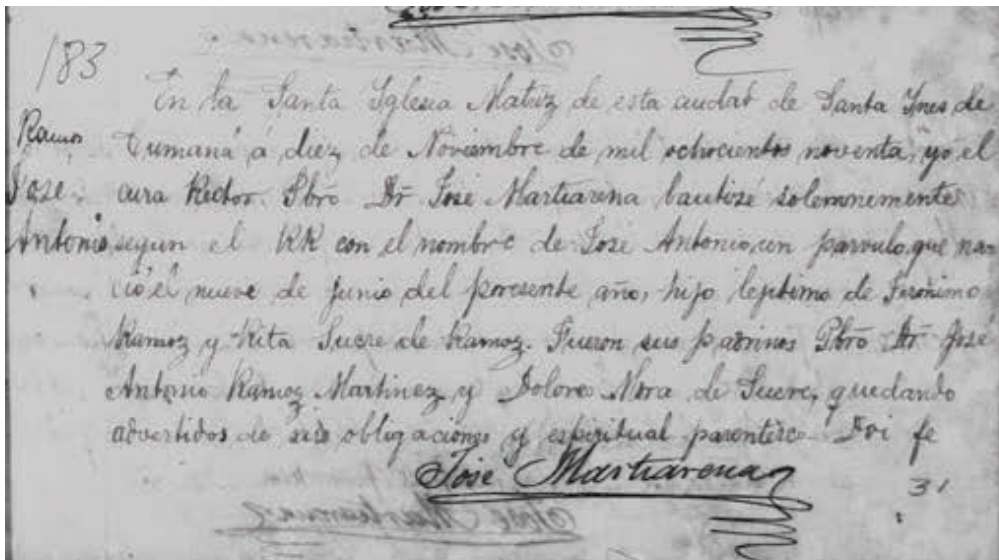 183
Ramos
José
Antonio
En la Santa Iglesia Matriz de esta ciudad de Santa Ines de
Cumaná á diez de Noviembre de mil ochocientos noventa, yo el
cura Rector Pbro Dr José Martiarena bauticé solemnemente
segun el RR con el nombre de José Antonio, un parvulo, que na-
ció el nueve de Junio del presente año, hijo legítimo de Jerónimo
Ramoz y Rita Sucre de Ramoz. Fueron sus padrinos Pbro Dr José
Antonio Ramoz Martinez y Dolores Mora de Sucre, quedando
advertidos de sus obligaciones y espiritual parentesco. Doi fe
José Martiarena
31